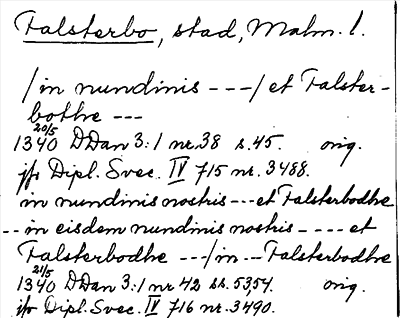 Falsterbo, stad, Malm. l.
/in nundinis - - -/ et Falster-
bothe - - -
1340 20/5 DDan 3:1 nr. 38 s. 45. orig.
jfr Dipl. Svec. IV 715 nr. 3488.
in nundinis nostris - - - et Falsterbodhe
- - in eisdem nundinis nostris - - - - et
Falsterbodhe - - -/in - - Falsterbodhe
1340 21/5 DDan 3:1 nr 42 ss. 53,54. orig.
jfr Dipl. Svec. IV 716 nr. 3490.